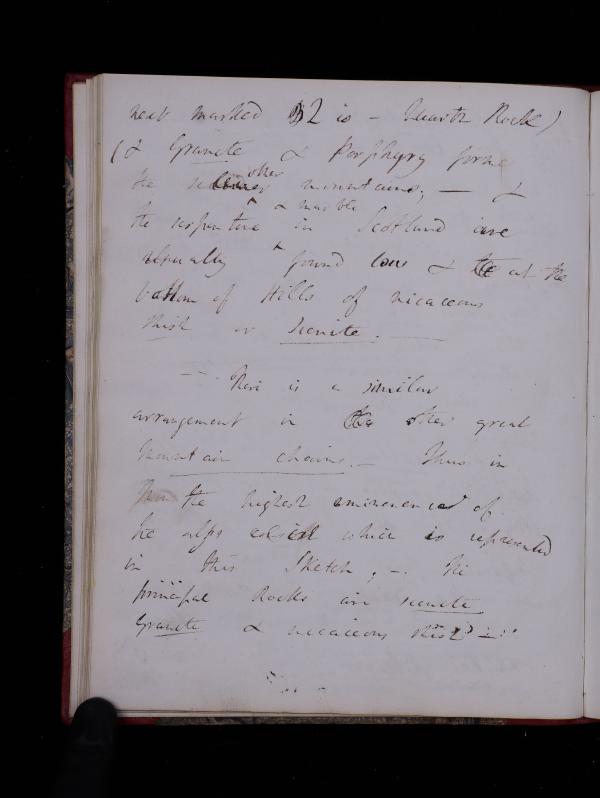 next marked 2 is - Quartz Rock)
(& Granite & Porphyry form
the other mountains; — &
the serpentine & marble in Scotland are
usually found low & at the
bottom of Hills of micaceous
shist or sienite. —
— There is a similar
arrangement in the other great
mountain chains. — Thus in
the highest eminences of
the alps which is represented
in this Sketch; — the
principal Rocks are sienite
Granite & micaceous shist —